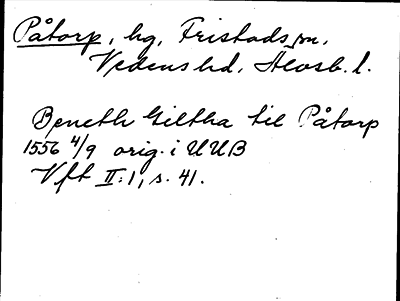 Påtorp, hg, Fristads sn,
Vedens hd, Älvsb. l.
Beneth Giltha til Påtorp
1556 4/9 orig. i UUB
Vft II:1, s. 41.